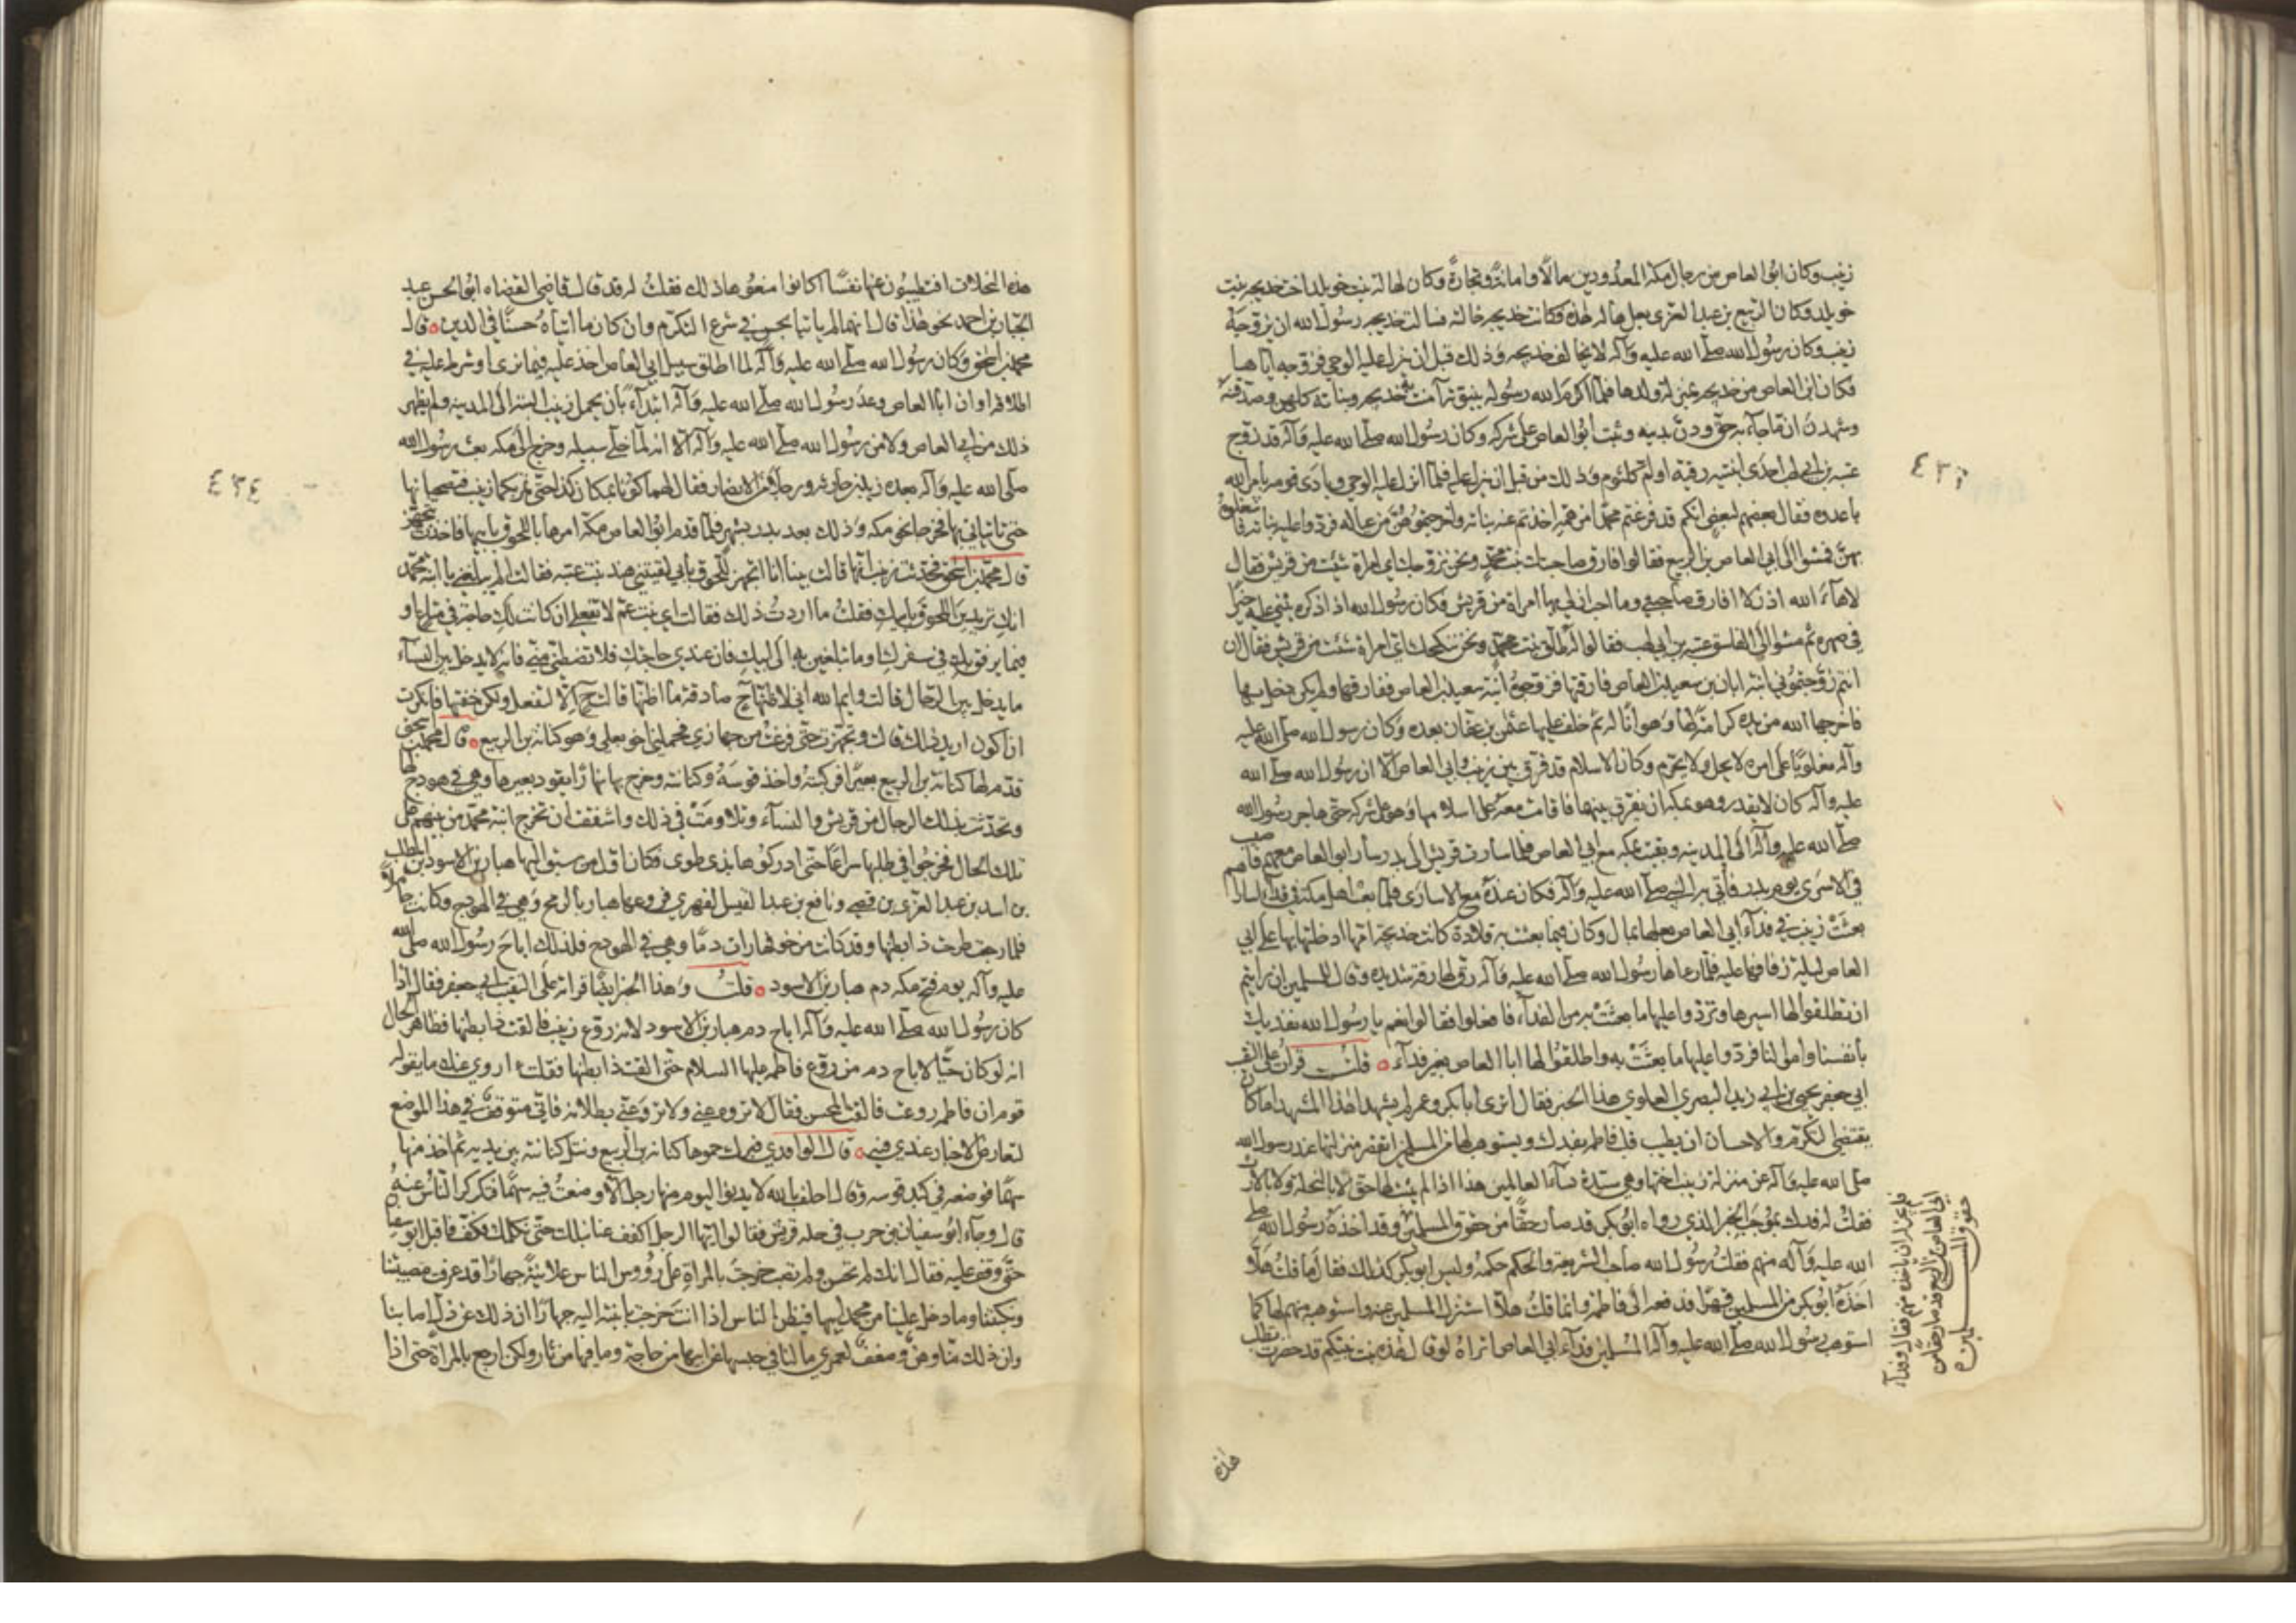 زينب وكان ابو العاص من رجال مكة المعدودين مالا وامانة وتجارة وكان لهالة بنت خويلد اخت خديجة بنت
خويلد وكان الربيع بن عبد العزى بعل هذه فكانت خديجة خالته فسالت خديجة رسول الله ان يزوجه
زينب وكان رسول الله صلى الله عليه وآله لا يخالف خديجة وذلك قبل ان ينزل عليه الوحي فزوجه اياها
فكان ابو العاص من خديجة بمنزلة ولدها فلما اكرم الله رسوله بنبوته آمنت به خديجة وبناته كلهن وصدقنه
وشهدن ان ما جاء به حق ودن بدينه وثبت ابو العاص على شركه وكان رسول الله صلى الله عليه وآله قد زوج
عتبة بن ابي لهب احدى ابنتيه رقية او ام كلثوم وذلك من قبل ان ينزل عليه فلما انزل عليه الوحي ونادى قومه بامر الله
باعدوه فقال بعضهم لبعض انكم قد فرغتم محمدا من همه اخذتم عنه بناته واخرجتموهن من عياله فردوا عليه بناته فاشغلوه
بهن فمشوا الى ابي العاص بن الربيع فقالوا فارق صاحبتك بنت محمد ونحن نزوجك اي امراة شئت من قريش فقال
لاهاء الله اذن لا افارق صاحبتي وما احب ان لي بها امراة من قريش فكان رسول الله اذا ذكره يثني عليه خيرا
في صهره ثم مشوا الى الفاسق عتبة بن ابي لهب فقالوا له طلق بنت محمد ونحن ننكحك اي امراة شئت من قريش فقال ان
انتم زوجتموني ابنة ابان بن سعيد بن العاص فارقتها فزوجوه ابنة سعيد بن العاص ففارقها ولم يكن دخل بها
فاخرجها الله من يده كرامة لها وهوانا له ثم خلف عليها عثمن بن عفان بعده وكان رسول الله صلى الله عليه
وآله مغلوبا على امره لا يحل ولا يحرم وكان الاسلام قد فرق بين زينب وابي العاص الا ان رسول الله صلى الله
عليه وآله كان لا يقدر وهو بمكة ان يفرق بينهما فاقامت معه على اسلامها وهو على شركه حتى هاجر رسول الله
صلى الله عليه وآله الى المدينة وبقيت بمكة مع ابي العاص فلما سارت قريش الى بدر سار ابو العاص معهم فاصيب
في الاسرى يوم بدر فاتي به النبي صلى الله عليه وآله فكان عنده مع الاسارى فلما بعث اهل مكة في فداء اساراهم
بعثت زينب في فداء ابي العاص بعلها بمال وكان فيما بعثت به قلادة كانت خديجة امها ادخلتها بها على ابي
العاص ليلة زفافها عليه فلما رءاها رسول الله صلى الله عليه وآله رق لها رقة شديدة وقال للمسلمين ان رايتم
ان تطلقوا لها اسيرها وتردوا عليها ما بعثت به من الفداء فافعلوا فقالوا نعم يا رسول الله نفديك
بانفسنا واموالنا فردوا عليها ما بعثت به واطلقوا لها ابا العاص بغير فداء ه قلت قرات على النقيب
ابي جعفر يحيى بن ابي زيد البصري العلوي هذا الخبر فقال اترى ابا بكر وعمر لم يشهدا هذا المشهد اما كان
يقتضي التكرم والاحسان ان يطيب قلب فاطمة بفدك ويستوهب لها من المسلمين اتقصر منزلتها عند رسول الله
صلى الله عليه وآله عن منزلة زينب اختها وهي سيدة نساء العالمين هذا اذا لم يثبت لها حق لا بالنحلة ولا بالارث
فقلت له فدك بموجب الخبر الذي رواه ابو بكر قد صار حقا من حقوق المسلمين وقد اخذه رسول الله صلى
الله عليه وآله منهم فقلت رسول الله صاحب الشريعة والحكم حكمه وليس ابو بكر كذلك فقال ما قلت هلا
اخذه ابو بكر من المسلمين قهرا فدفعه الى فاطمة وانما قلت هلا استنزل المسلمين عنه واستوهبه منهم لها كما
استوهب رسول الله صلى الله عليه وآله المسلمين فداء ابي العاص اتراه لو قال هذه بنت نبيكم قد حضرت تطلب
فلم يجز ان ياخذه منهم فقال وفداء
ابي العاص بن الربيع قد صار حقا من
حقوق المسلمين ه
هذه
هذه النخلات افتطيبون عنها نفسا اكانوا منعوها ذلك فقلت له قد قال قاضي القضاه ابو الحسن عبد
الجبار بن احمد نحو هذا قال انهما لم ياتيا بحسن في شرع التكرم وان كان ما اتياه حسنا في الدين ه قال
محمد بن اسحق وكان رسول الله صلى الله عليه وآله لما اطلق سبيل ابي العاص اخذ عليه فيما نرى او شرط عليه في
اطلاقه او ان ابا العاص وعد رسول الله صلى الله عليه وآله ابتداء بان يحمل زينب اليه الى المدينة ولم يظهر
ذلك من ابي العاص ولا من رسول الله صلى الله عليه وآله الا انه لما خلي سبيله وخرج الى مكة بعث رسول الله
صلى الله عليه وآله بعده زيد بن حارثة ورجلا من الانصار فقال لهما كونا بمكان كذا حتى تمر بكما زينب فتصحبانها
حتى تاتياني بها فخرجا نحو مكة وذلك بعد بدر بشهر فلما قدم ابو العاص مكة امرها باللحوق بابيها فاخذت تتجهز
قال محمد بن اسحق فحدثت عن زينب انها قالت بينا انا اتجهز للحوق بابي لقيتني هند بنت عتبة فقالت الم يبلغني يا ابنة محمد
انك تريدين اللحوق بابيك فقلت ما اردت ذلك فقالت اي بنت عم لا تفعلي ان كانت لك حاجة في متاع او
فيما يرفق بك في سفرك او ما تبلغين به الى ابيك فان عندي حاجتك فلا تضطني مني فانه لا يدخل بين النساء
ما يدخل بين الرجال قالت وايم الله اني لاظنها حينئذ صادقة ما اظنها قالت حينئذ الا لتفعل ولكن خفتها فانكرت
ان اكون اريد ذلك قالت وتجهزت حتى فرغت من جهازي فحملني اخو بعلي وهو كنانة بن الربيع ه قال محمد بن اسحق
قدم لها كنانة بن الربيع بعيرا فركبته واخذ قوسه وكنانته وخرج بها نهارا يقود بعيرها وهي في هودج لها
وتحدثت بذلك الرجال من قريش والنساء وتلاومت في ذلك واشفقت ان تخرج ابنة محمد من بينهم على
تلك الحال فخرجوا في طلبها سراعا حتى ادركوها بذي طوى فكان اول من سبق اليها هبار بن الاسود بن المطلب
بن اسد بن عبد العزى بن قصي ونافع بن عبد القيس الفهري فروعها هبار بالرمح وهي في الهودج وكانت حاملا
فلما رجعت طرحت ذا بطنها وقد كانت من خوفها رات دما وهي في الهودج فلذلك اباح رسول الله صلى الله
عليه وآله يوم فتح مكة دم هبار بن الاسود ه قلت وهذا الخبر ايضا قراته على النقيب ابي جعفر فقال اذا
كان رسول الله صلى الله عليه وآله اباح دم هبار بن الاسود لانه روع زينب فالقت ذا بطنها فظاهر الحال
انه لو كان حيا لاباح دم من روع فاطمة عليها السلام حتى القت ذا بطنها فقلت ءاروي عنك ما يقوله
قوم ان فاطمة روعت فالقت المحسن فقال لا تروه عني ولا ترو عني بطلانه فاني متوقف في هذا الموضع
لتعارض الاخبار عندي فيه ه قال الواقدي فبرك حموها كنانة بن الربيع ونثل كنانته بين يديه ثم اخذ منها
سهما فوضعه في كبد قوسه وقال احلف بالله لا يدنو اليوم منها رجل الا وضعت فيه سهما فتكركر الناس عنه
قال وجاء ابو سفيان بن حرب في جلة قريش فقالوا ايها الرجل اكفف عنا نبلك حتى نكلمك فكف فاقبل ابو سفيان
حتى وقف عليه فقال انك لم تحسن ولم تصب خرجت بالمراة على رؤوس الناس علانية جهارا وقد عرفت مصيبتنا
ونكبتنا وما دخل علينا من محمد ابيها فيظن الناس اذا انت خرجت بابنته اليه جهارا ان ذلك عن ذل اصابنا
وان ذلك منا وهن وضعف لعمري ما لنا في حبسها عن ابيها من حاجة وما فيها من ثار ولكن ارجع بالمراة حتى اذا
٤٣٤